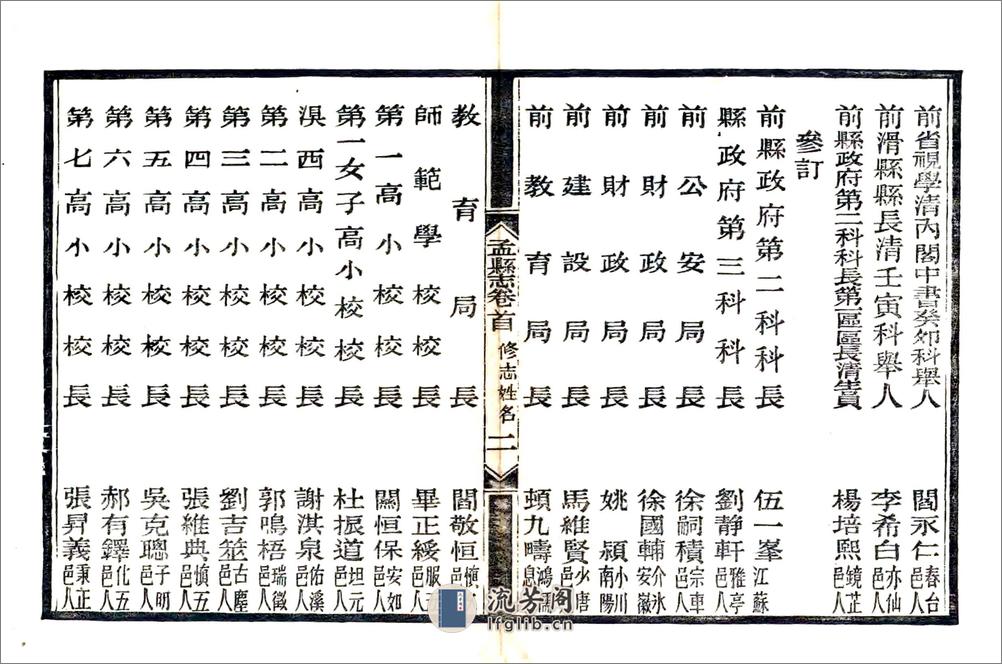 前省視學清內閣中書癸卯科舉人 閻永仁 春台邑人
前滑縣縣長清壬寅科舉人 李希白 亦仙邑人
前縣政府第二科科長第一區區長清生員 楊培熙 鏡芷邑人
參訂
前縣政府第二科科長 伍一峯 江蘇
縣政府第三科科長 劉靜軒 雅亭邑人
前公安局局長 徐嗣積 宗車邑人
前財政局局長 徐國輔 介氷安徽
前財政局長 姚潁 小川南陽
前建設局長 馬維賢 少唐邑
前教育局長 頓九疇 鴻
孟縣志卷首 修志姓名 二
教育局長 閻敬恒 慎邑
師範學校校長 畢正綬 服邑
第一高小校校長 闗恒保 安如邑人
第一女子高小校校長 杜振道 坦元邑人
溴西高小校長 謝淇泉 佑溪邑人
第二高小校校長 郭鳴梧 瑞徵邑人
第三高小校校長 劉吉筮 古塵邑人
第四高小校校長 張維典 慎五邑人
第五高小校校長 吳克聰 子明邑人
第六高小校校長 郝有鐸 化五邑人
第七高小校校長 張昇義 秉正邑人
流芳閣
lfglib.cn